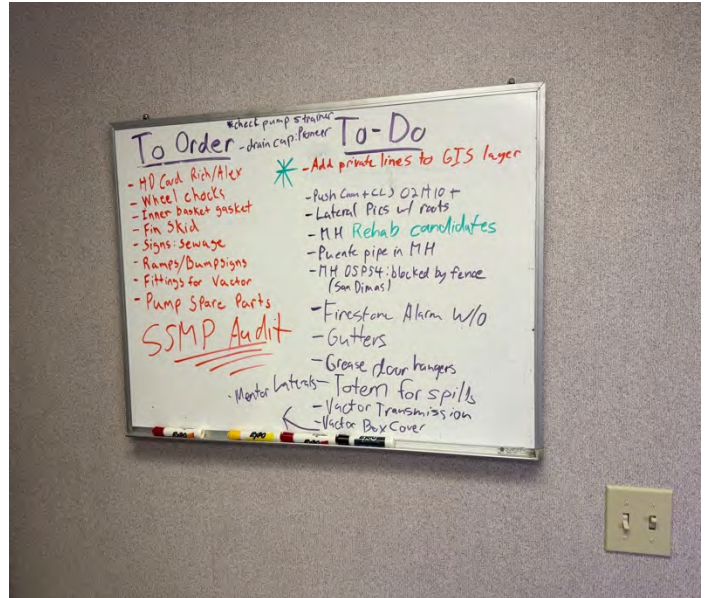 *check pump strainer
To Order
- drain cap: Pioneer
- HD Card Rich/Alex
- Wheel chocks
- Inner basket gasket
- Fin Skid
- Signs: Sewage
- Ramps/Bumpsigns
- Fittings for Vactor
- Pump Spare Parts
SSMP Audit
To-Do
- Add private lines to GIS layer
- Push Cam + CLS 02M10 +
- Lateral Pics w/ roots
- MH Rehab candidates
- Puente pipe in MH
- MH OSPS4: blocked by fence
(San Dimas)
- Firestone Alarm W/O
- Gutters
- Grease door hangers
- Mentor Laterals
- Totem for spills
- Vactor Transmission
- Vactor Box Cover
EXPO
EXPO
EXPO
EXPO